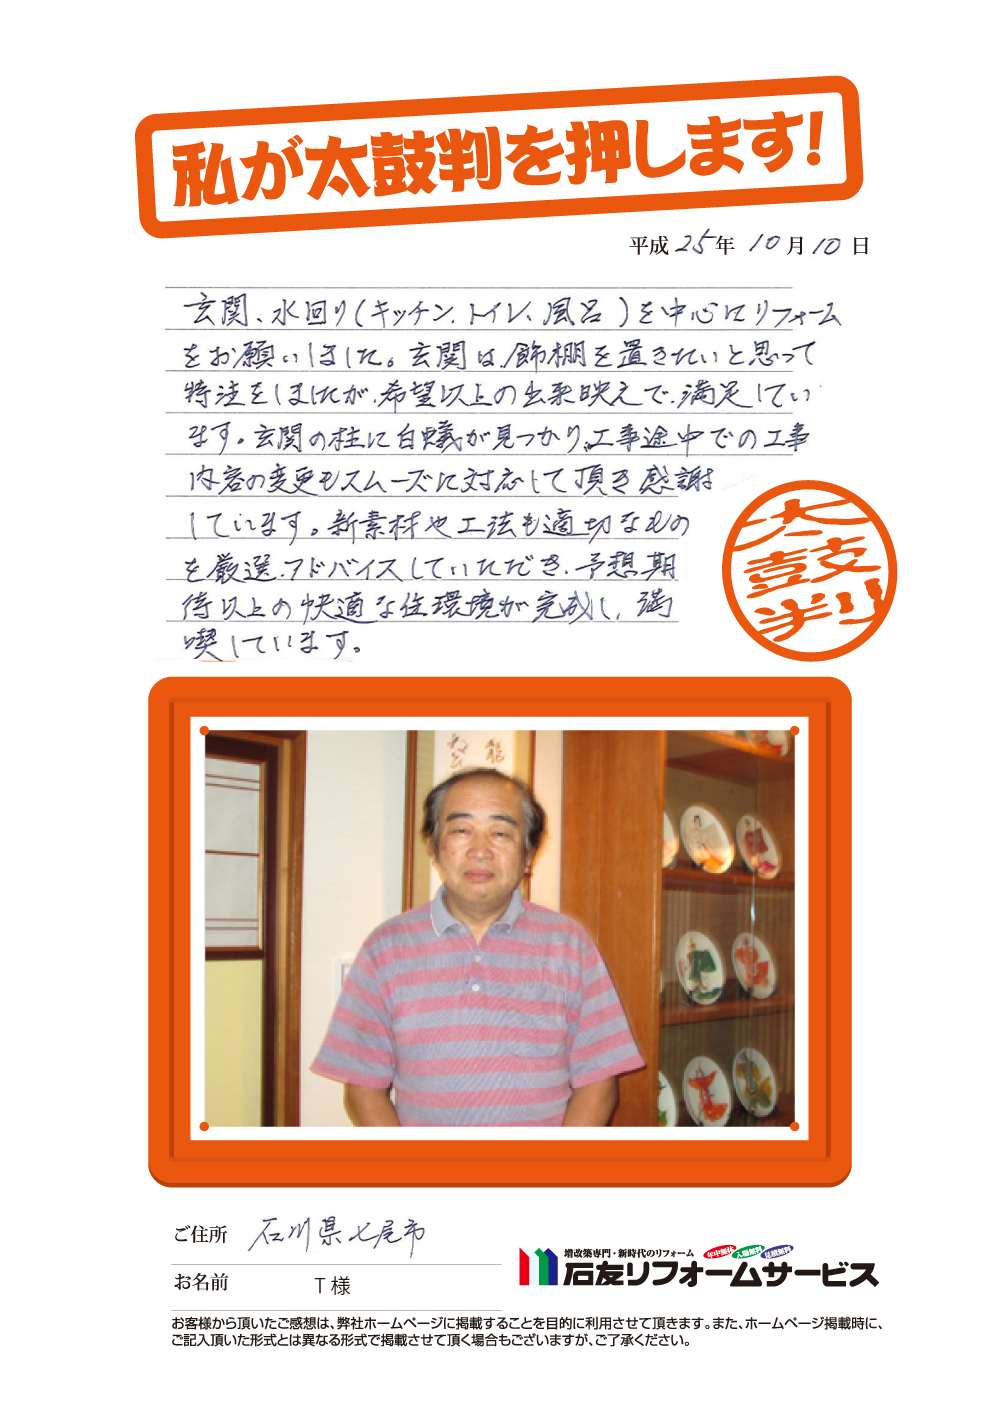 私が太鼓判を押します!
平成 25 年 10 月 10 日
玄関、水回り(キッチン、トイレ、風呂)を中心にリフォーム
をお願いしました。玄関は、飾棚を置きたいと思って
特注をしましたが、希望以上の出来映えで、満足してい
ます。玄関の柱に白蟻が見つかり、工事途中での工事
内容の変更もスムーズに対応して頂き感謝
しています。新素材や工法も適切なもの
を厳選、アドバイスしていただき、予想期
待以上の快適な住環境が完成し、満
喫しています。
太鼓判
ご住所 石川県七尾市
お名前 T 様
増改築専門・新時代のリフォーム 年中無休 入場無料 見積無料
石友リフォームサービス
お客様から頂いたご感想は、弊社ホームページに掲載することを目的に利用させて頂きます。また、ホームページ掲載時に、
ご記入頂いた形式とは異なる形式で掲載させて頂く場合もございますが、ご了承ください。